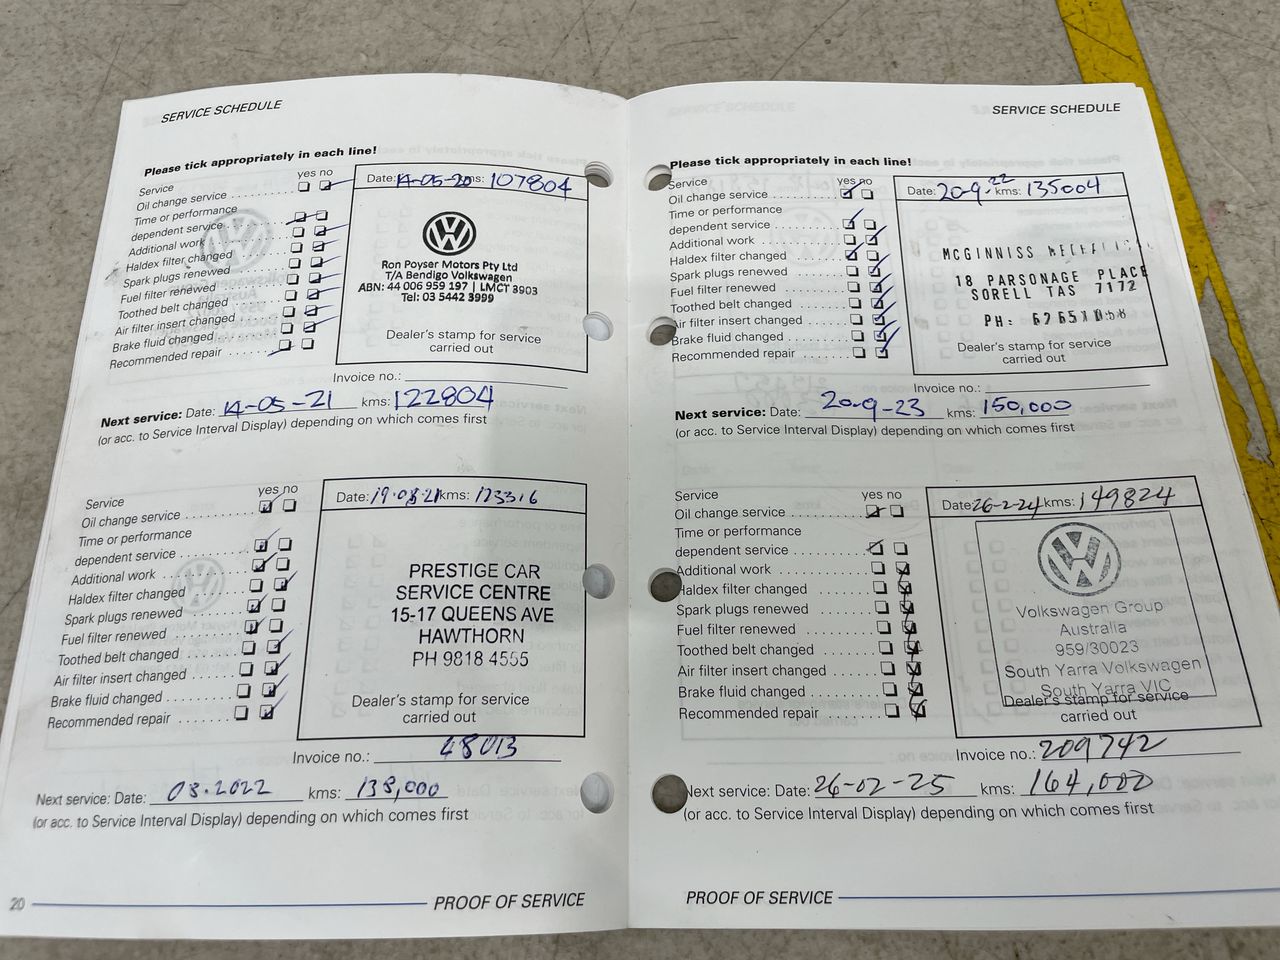 SERVICE SCHEDULE
Please tick appropriately in each line!
Service yes no
Oil change service
Time or performance
dependent service
Additional work
Haldex filter changed
Spark plugs renewed
Fuel filter renewed
Toothed belt changed
Air filter insert changed
Brake fluid changed
Recommended repair
Date: 14-05-20 kms: 107804
Ron Poyser Motors Pty Ltd
T/A Bendigo Volkswagen
ABN: 44 006 959 197 | LMCT 3903
Tel: 03 5442 3999
Dealer's stamp for service
carried out
Invoice no.:
Next service: Date: 14-05-21 kms: 122804
(or acc. to Service Interval Display) depending on which comes first
Service yes no
Oil change service
Time or performance
dependent service
Additional work
Haldex filter changed
Spark plugs renewed
Fuel filter renewed
Toothed belt changed
Air filter insert changed
Brake fluid changed
Recommended repair
Date: 19.08.21 kms: 123316
PRESTIGE CAR
SERVICE CENTRE
15-17 QUEENS AVE
HAWTHORN
PH 9818 4555
Dealer's stamp for service
carried out
Invoice no.: 48013
Next service: Date: 08.2022 kms: 138,000
(or acc. to Service Interval Display) depending on which comes first
20 PROOF OF SERVICE
SERVICE SCHEDULE
Please tick appropriately in each line!
Service yes no
Oil change service
Time or performance
dependent service
Additional work
Haldex filter changed
Spark plugs renewed
Fuel filter renewed
Toothed belt changed
Air filter insert changed
Brake fluid changed
Recommended repair
Date: 20-9-22 kms: 135004
MCGINNISS
18 PARSONAGE PLACE
SORELL TAS 7172
PH:
Dealer's stamp for service
carried out
Invoice no.:
Next service: Date: 20-9-23 kms: 150,000
(or acc. to Service Interval Display) depending on which comes first
Service yes no
Oil change service
Time or performance
dependent service
Additional work
Haldex filter changed
Spark plugs renewed
Fuel filter renewed
Toothed belt changed
Air filter insert changed
Brake fluid changed
Recommended repair
Date: 26-2-24 kms: 149824
Volkswagen Group
Australia
959/30023
South Yarra Volkswagen
South Yarra VIC
Dealer's stamp for service
carried out
Invoice no.: 209742
Next service: Date: 26-02-25 kms: 164,000
(or acc. to Service Interval Display) depending on which comes first
PROOF OF SERVICE